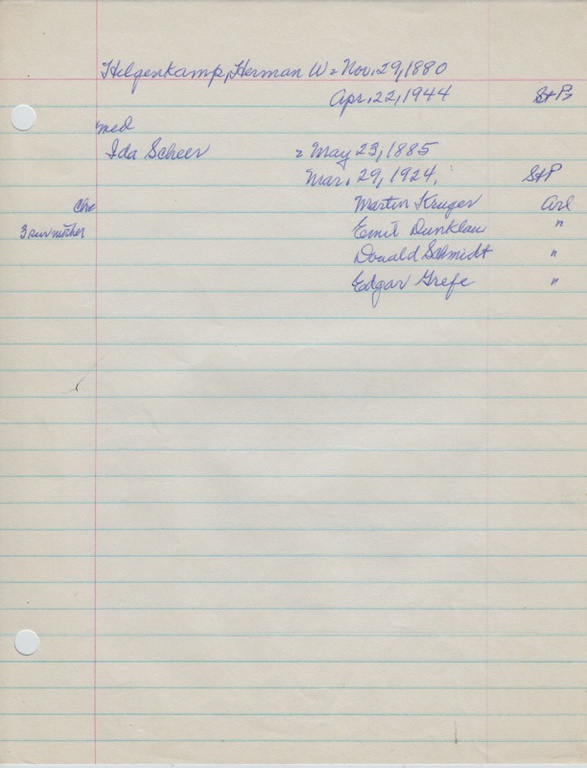 Hilgenkamp, Herman W = Nov. 29, 1880
Apr. 22, 1944 St P
med
Ida Scheer = May 23, 1885
Mar. 29, 1924. St P
Chr Martin Kruger Arl
3 sur mother Emil Dunklau "
Donald Schmidt "
Edgar Grefe "